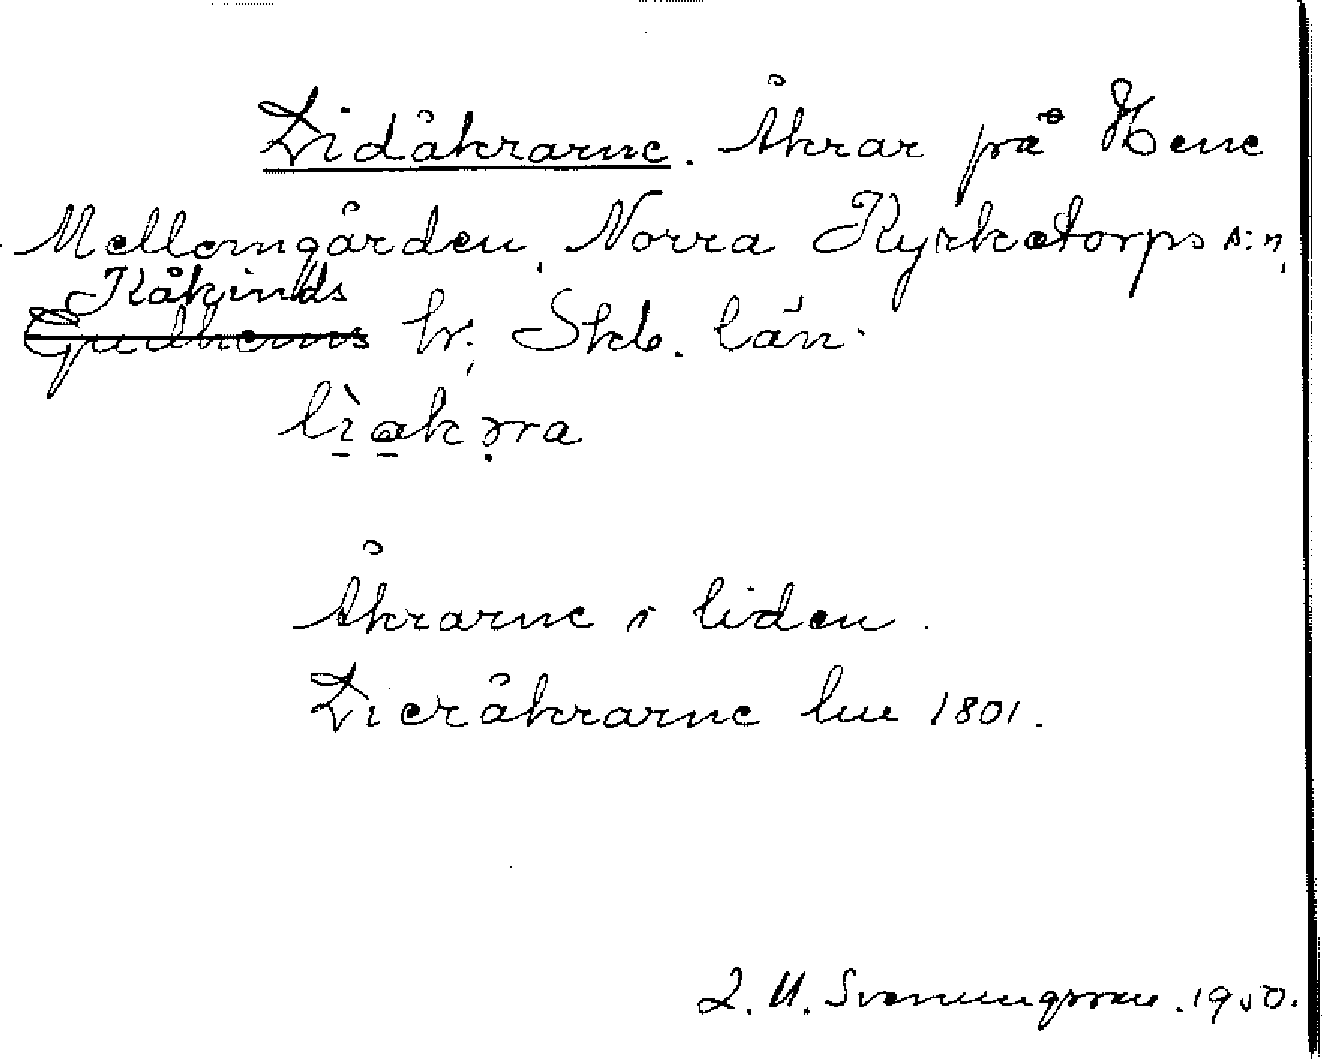 Lidåkrarne. Åkrar på Hene
Mellomgården, Norra Kyrketorps s:n,
Kåkinds
Gudhems hr, Skb. län.
lìakərra
Åkrarne i liden.
Lieråkrarne lm 1801.
L. U. Svenungsson. 1950.